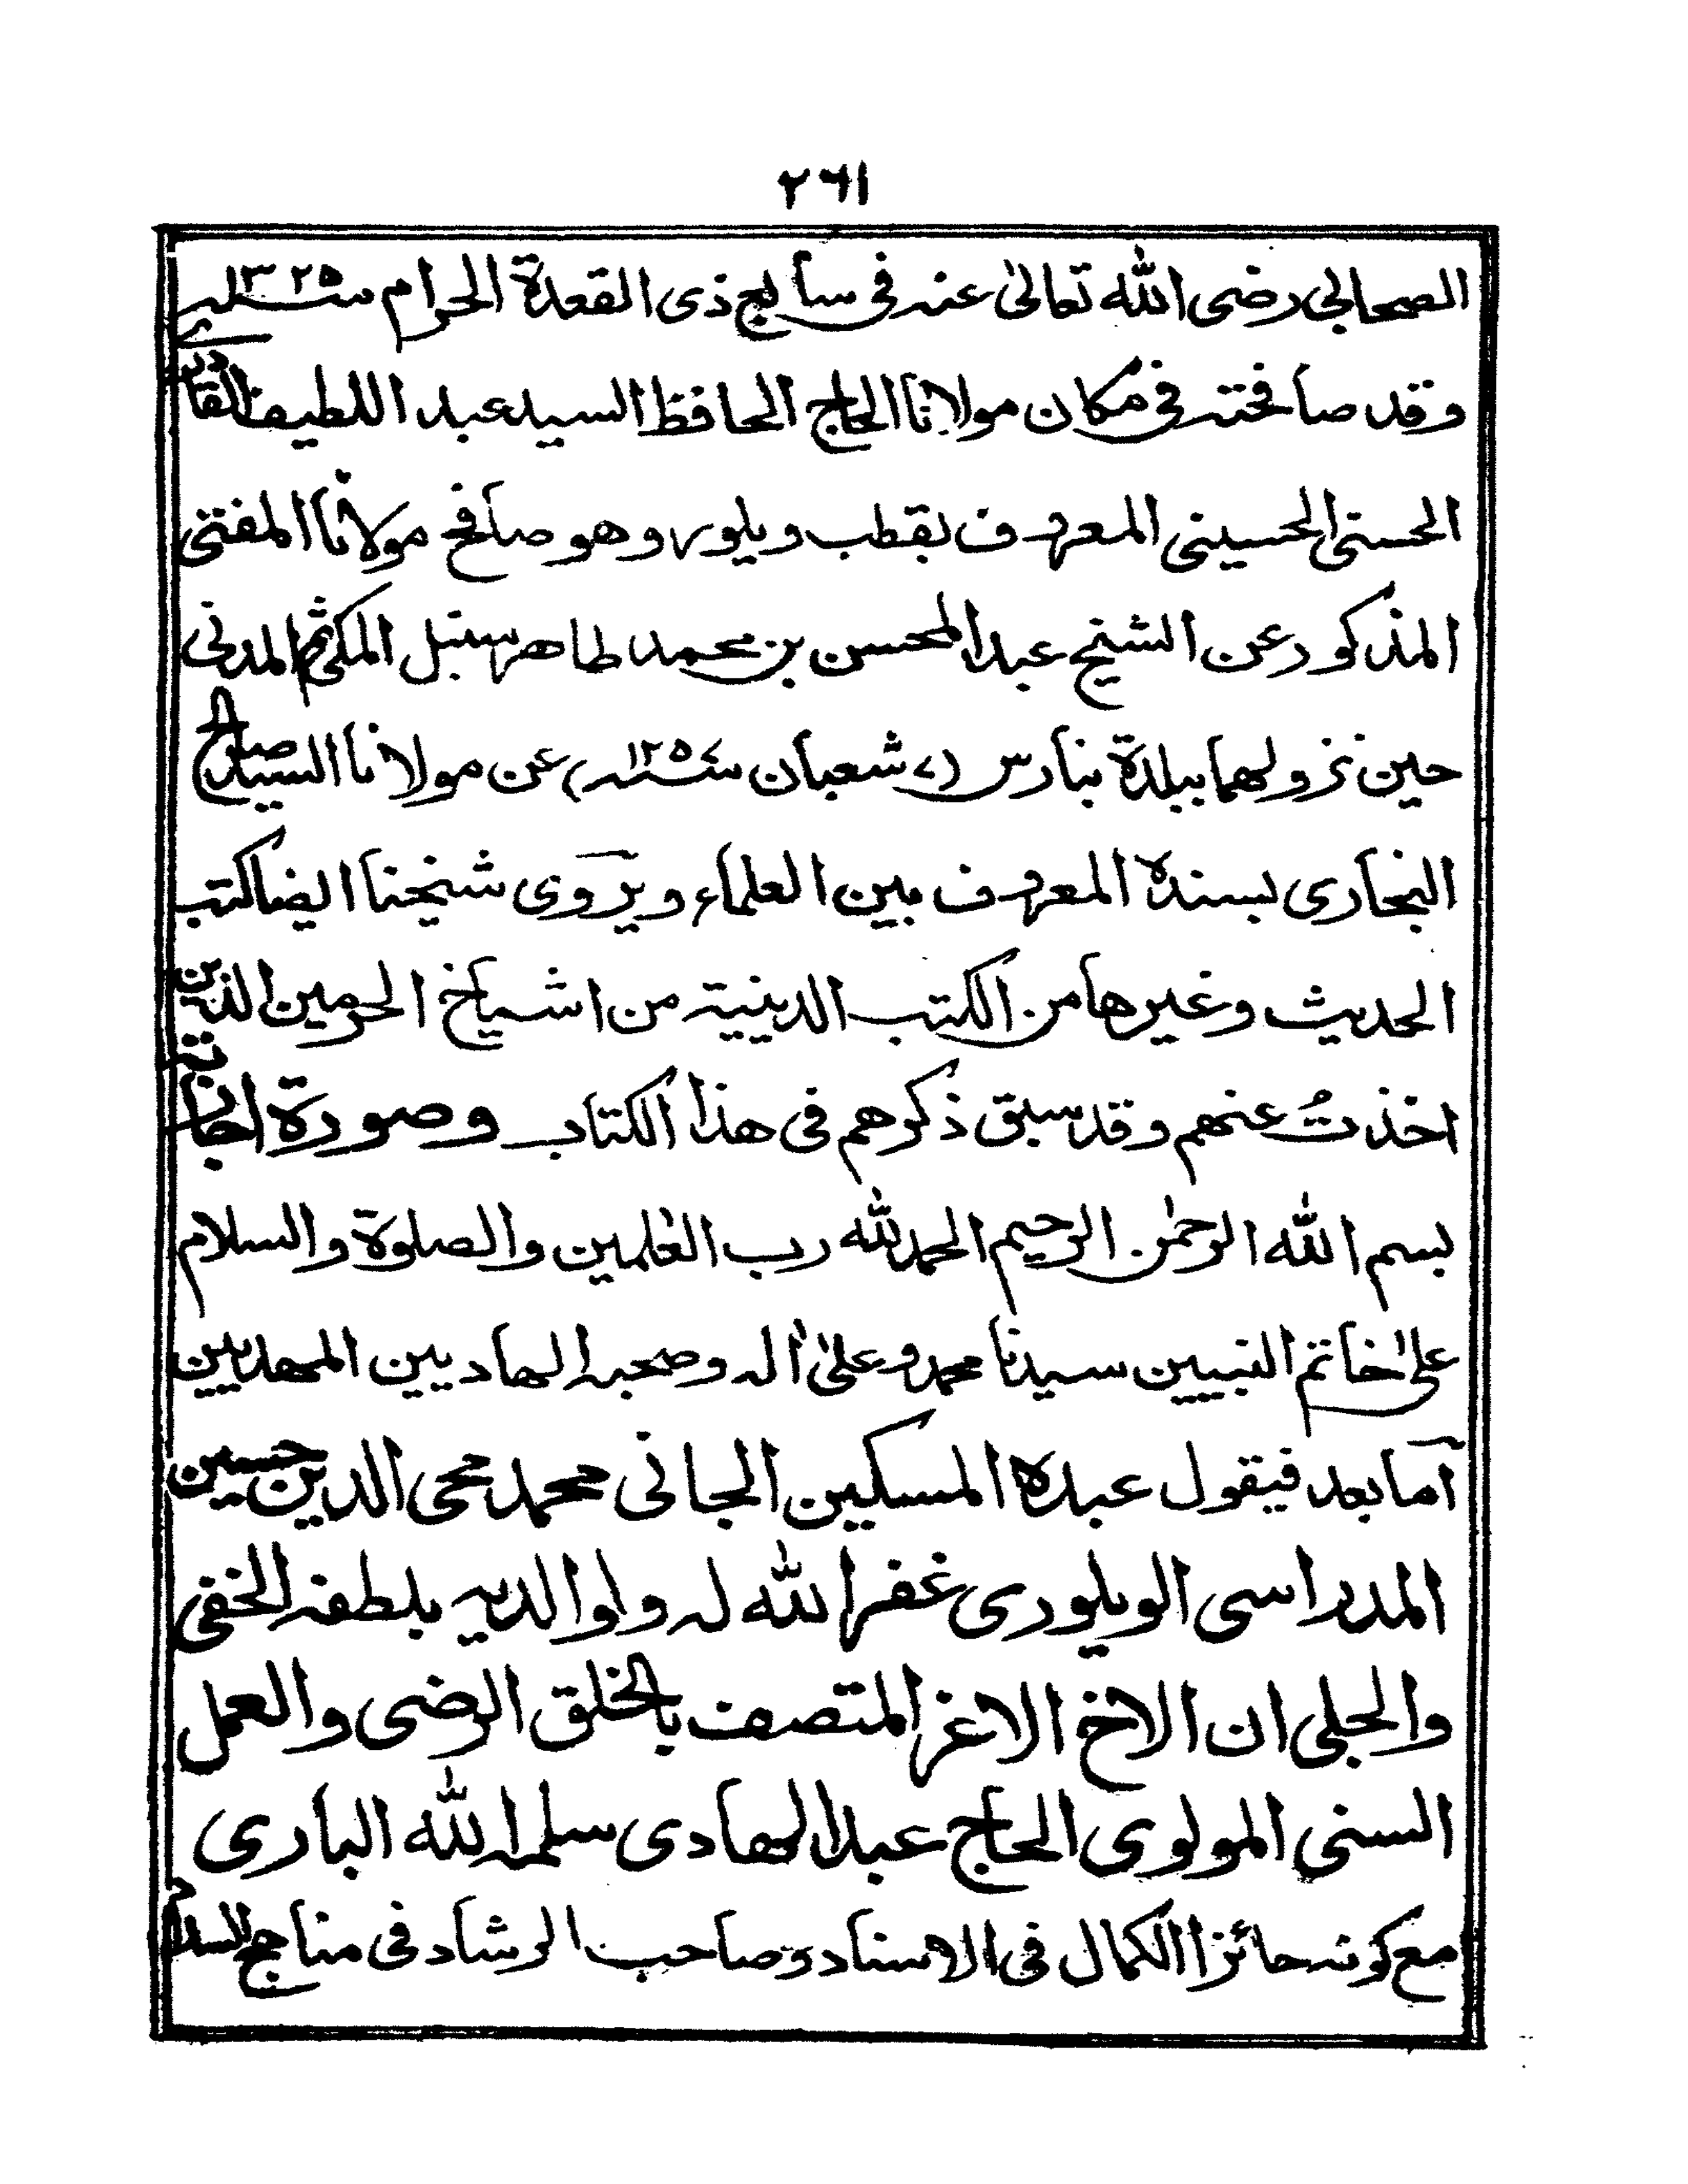 ٢٦١
الصحابي رضى الله تعالىٰ عنه فى سابع ذى القعدة الحرام سنة ١٣٢٥
وقد صافحته فى مكان مولانا الحاج الحافظ السيد عبد اللطيف القادرى
الحسنى الحسينى المعروف بقطب ويلور وهو صافح مولانا المفتى
المذكور عن الشيخ عبد المحسن بن محمد طاهر سنبل المكى ثم المدنى
حين نزولهما ببلدة بنارس (٧ شعبان سنة ١٢٥٧) عن مولانا السيد صالح
البخارى بسنده المعروف بين العلماء ويروى شيخنا ايضا كتب
الحديث وغيرها من الكتب الدينية من اشياخ الحرمين الذين
اخذتُ عنهم وقد سبق ذكرهم فى هذا الكتاب وصورة اجازته
بسم الله الرحمٰن الرحيم الحمد لله رب العٰلمين والصلوة والسلام
علىٰ خاتم النبيين سيدنا محمد وعلىٰ اله وصحبه الهاديين المهديين
اما بعد فيقول عبده المسكين الجانى محمد محى الدين حسين
المدراسى الويلورى غفر الله له ولوالديه بلطفه الخفى
والجلى ان الاخ الاغر المتصف بالخلق الرضى والعمل
السنى المولوى الحاج عبد الهادى سلمه الله البارى
مع كونه حائزا الكمال فى الاسناد وصاحب الرشاد فى مناهج السلام